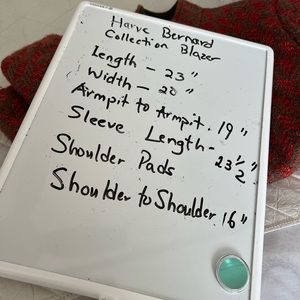 Harve Bernard
Collection Blazer
Length - 23"
Width - 20"
Armpit to Armpit. 19"
Sleeve Length - 23 1/2"
Shoulder Pads
Shoulder to Shoulder 16"